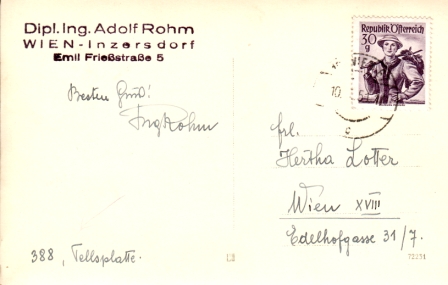 Dipl. Ing. Adolf Rohm
WIEN-Inzersdorf
Emil Frießstraße 5
Republik Österreich
30
g
Besten Gruß!
Ing Rohm
frl.
Hertha Lotter
Wien XVIII
Edelhofgasse 31/7.
388, Tellsplatte.